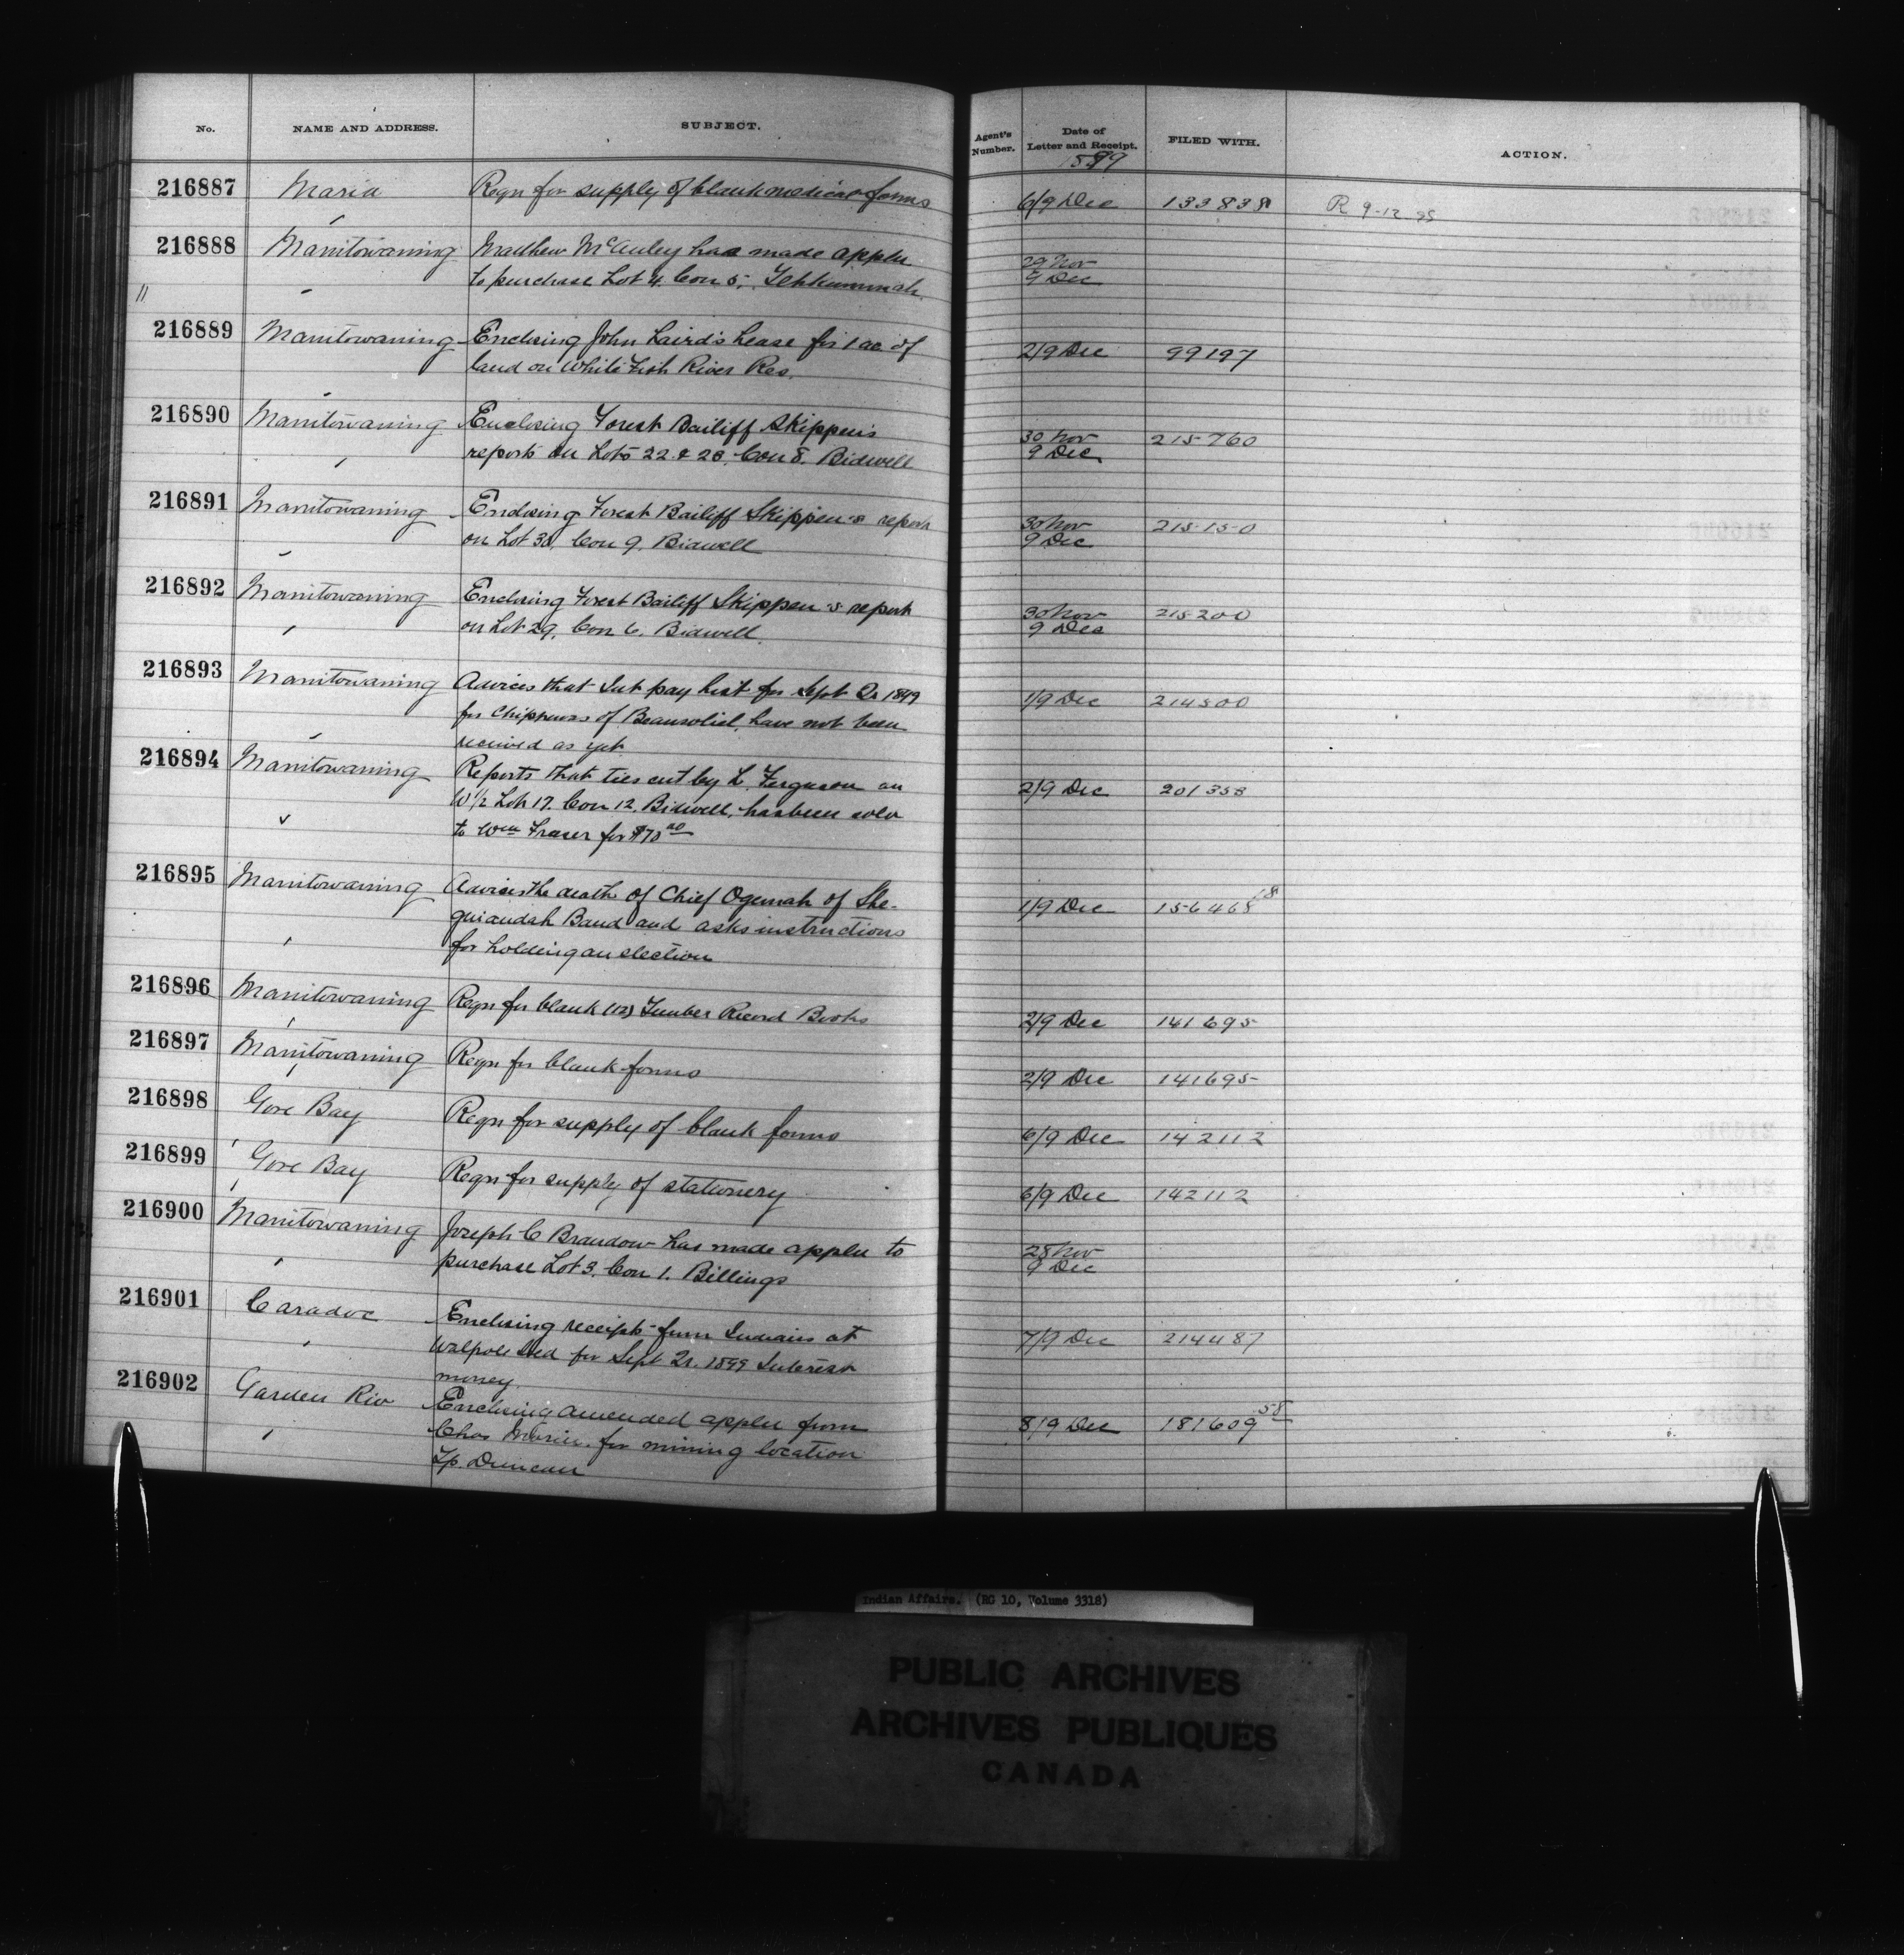 No. NAME AND ADDRESS. SUBJECT. Agent's Number. Date of Letter and Receipt. FILED WITH. ACTION.
1899
216887 Maria Reqn for supply of blank medical forms 6/9 Dec 133838 R 9-12-95
216888 Manitowaning Matthew McAuley has made appln 29 Nov
to purchase Lot 4. Con 5, Tehkummah. 9 Dec
11
216889 Manitowaning Enclosing John Laird's Lease for 1 ac of 2/9 Dec 99197
land on White Fish River Res.
216890 Manitowaning Enclosing Forest Bailiff Skippen's 30 Nov 215760
reports on Lots 22 & 28, Con 8. Bidwell 9 Dec
216891 Manitowaning Enclosing Forest Bailiff Skippen's report 30 Nov 215150
on Lot 30, Con 9. Bidwell 9 Dec
216892 Manitowaning Enclosing Forest Bailiff Skippen's report 30 Nov 215200
on Lot 29, Con 6. Bidwell 9 Dec
216893 Manitowaning Advices that Int pay list for Sept Qr 1899 1/9 Dec 214500
for Chippewas of Beausoliel, have not been
received as yet
216894 Manitowaning Reports that ties cut by L. Ferguson on 2/9 Dec 201358
W 1/2 Lot 17. Con 12. Bidwell, has been sold
to Wm Fraser for $70 00
216895 Manitowaning Advices the death of Chief Ogemah of She- 1/9 Dec 156468 18
guiandah Band and asks instructions
for holding an election
216896 Manitowaning Reqn for blank (12) Timber Record Books 2/9 Dec 141695
216897 Manitowaning Reqn for blank forms 2/9 Dec 141695
216898 Gore Bay Reqn for supply of blank forms 6/9 Dec 142112
216899 Gore Bay Reqn for supply of stationery 6/9 Dec 142112
216900 Manitowaning Joseph C Brandow has made appln to 28 Nov
purchase Lot 3. Con 1. Billings 9 Dec
216901 Caradoc Enclosing receipts from Indians at 7/9 Dec 214487
Walpole Isld for Sept Qr. 1899 Interest
money
216902 Garden Riv Enclosing amended appln from 8/9 Dec 181609 58
Chas for mining location
Tp. Duncan
Indian Affairs. (RG 10, Volume 3318)
PUBLIC ARCHIVES
ARCHIVES PUBLIQUES
CANADA